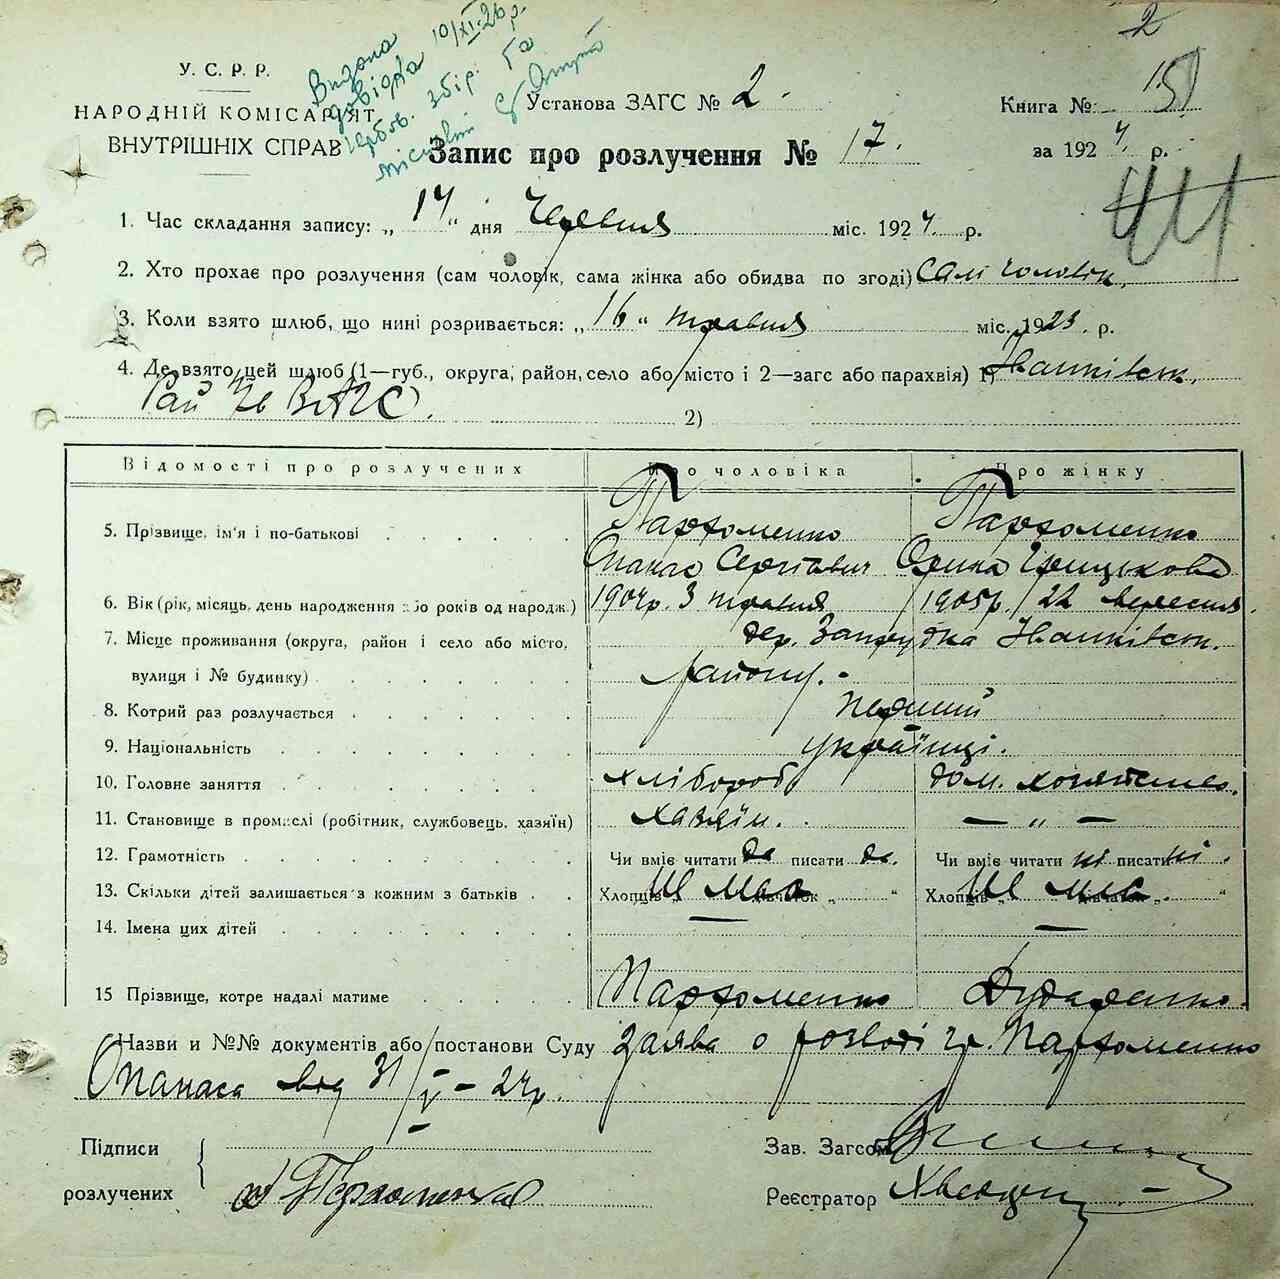 2
У. С. Р. Р.
НАРОДНІЙ КОМІСАРІЯТ
ВНУТРІШНІХ СПРАВ
Видана
довідка 10/XI-26 р.
гербов. збір.
Установа ЗАГС № 2.
Книга №
Запис про розлучення № 17.
за 1924 р.
1. Час складання запису: „14“ дня Червня міс. 1924 р.
2. Хто прохає про розлучення (сам чоловік, сама жінка або обидва по згоді) сам чоловік.
3. Коли взято шлюб, що нині розривається: „16“ травня міс. 1923 р.
4. Де взято цей шлюб (1—губ., округа, район, село або місто і 2—загс або парахвія) 1) Іванківськ.
Рай 2)
Відомості про розлучених Про чоловіка Про жінку
5. Прізвище, ім'я і по-батькові Пархоменко Пархоменко
Опанас Сергієвич Орина Грицькова
6. Вік (рік, місяць, день народження або років од народж.) 1904р. 3 травня 1905р. 22 вересня.
7. Місце проживання (округа, район і село або місто, дер. Запрудка Іванківськ.
вулиця і № будинку) району.
8. Котрий раз розлучається перший
9. Національність українці.
10. Головне заняття хлібороб дом. хозяйство.
11. Становище в промислі (робітник, службовець, хазяїн) хазяїн. — „ —
12. Грамотність Чи вміє читати да писати да. Чи вміє читати ні писати ні.
13. Скільки дітей залишається з кожним з батьків Хлопців „ дівчаток „ “ Хлопців „ дівчаток „ “
14. Імена цих дітей — —
15 Прізвище, котре надалі матиме Пархоменко Дударенко.
Назви и №№ документів або постанови Суду Заява о розводі гр. Пархоменко
Опанаса від 31/V – 24р.
Підписи Зав. Загсом
розлучених Пархоменко Реєстратор